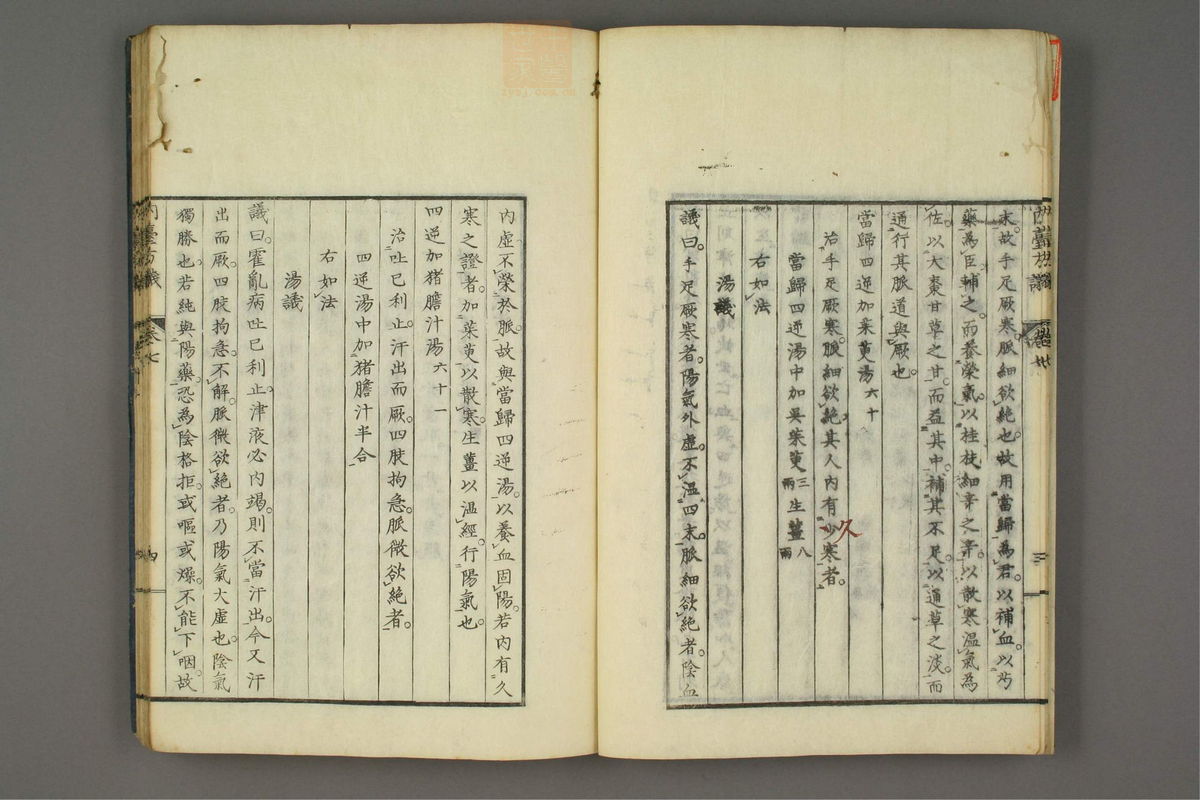 末故手足厥寒脈細欲絕也故用當歸為君以補血以芍
藥為臣輔之而養榮氣以桂枝細辛之辛以散寒溫氣為
佐以大棗甘草之甘而益其中補其不足以通草之淡而
通行其脈道與厥也
當歸四逆加茱萸湯六十
治手足厥寒脈細欲絕其人內有少寒者
久
當歸四逆湯中加吳茱萸三兩生薑八兩
右如法
湯議
議曰手足厥寒者陽氣外虛不溫四末脈細欲絕者陰血
內虛不榮於脈故與當歸四逆湯以養血固陽若內有久
寒之證者加茱萸以散寒生薑以溫經行陽氣也
四逆加猪膽汁湯六十一
治吐已利止汗出而厥四肢拘急脈微欲絕者
四逆湯中加猪膽汁半合
右如法
湯議
議曰霍亂病吐已利止津液必內竭則不當汗出今又汗
出而厥四肢拘急不解脈微欲絕者乃陽氣大虛也陰氣
獨勝也若純與陽藥恐為陰格拒或嘔或燥不能下咽故
內臺方議 卷七